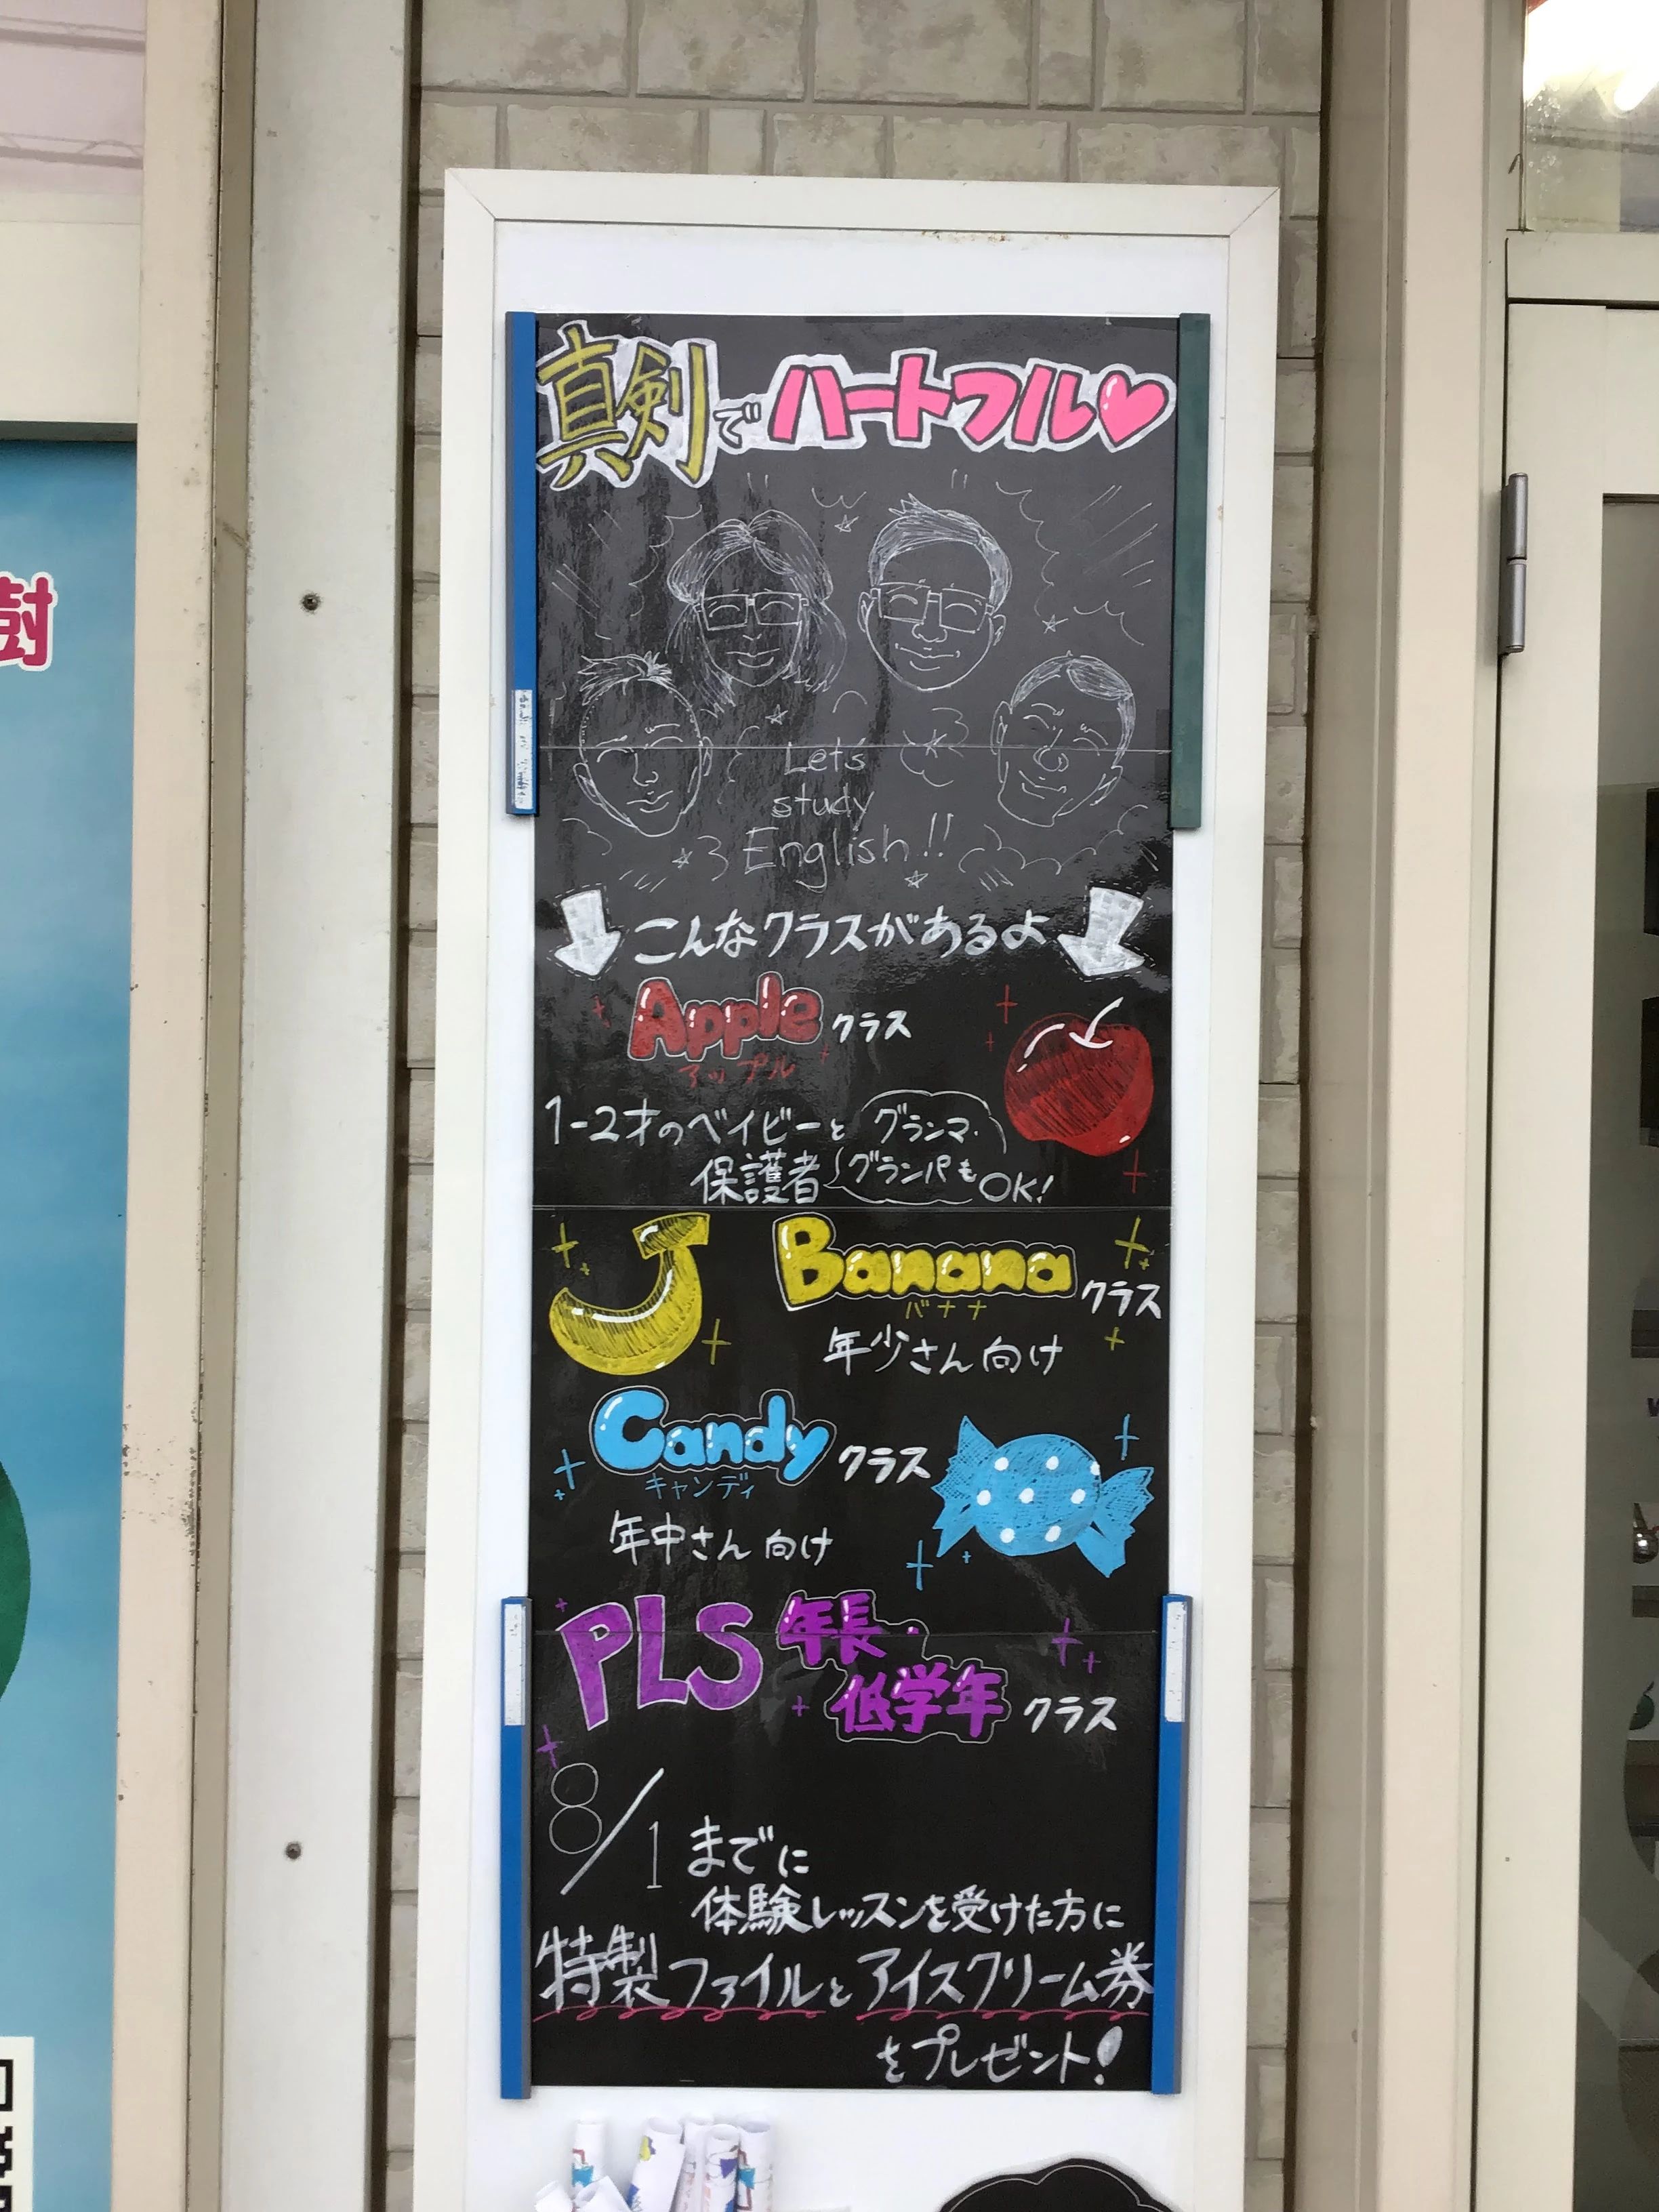 真剣でハートフル♥
Let's
study
English!!
こんなクラスがあるよ
Appleクラス
アップル
1-2才のベイビーと
保護者
グランマ・
グランパも
OK!
Bananaクラス
バナナ
年少さん向け
Candyクラス
キャンディ
年中さん向け
PLS 年長・
低学年クラス
8/1までに
体験レッスンを受けた方に
特製ファイルとアイスクリーム券
をプレゼント!
樹